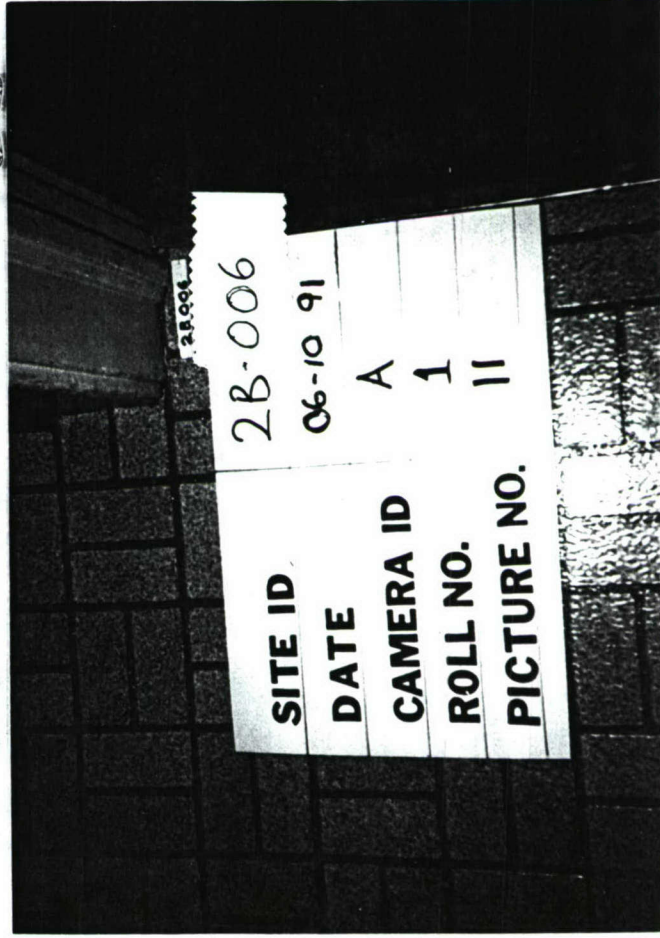 2B006
SITE ID 2B-006
DATE 06-10 91
CAMERA ID A
ROLL NO. 1
PICTURE NO. 11